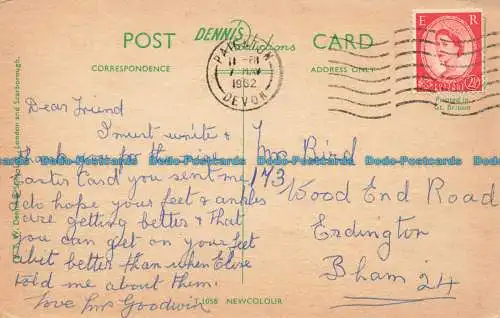 POST
DENNIS
Productions
CARD
CORRESPONDENCE
ADDRESS ONLY
PAIGNTON
11 - PM
7 MAY
1962
DEVON
E R
2½D
Printed in
Gt. Britain
Dear Friend
I must write &
thank you for the nice
Easter Card you sent me
do hope your feet & ankles
are getting better & that
you can get on your feet
abit better than when Elsie
told me about them.
love Mrs Goodwin
Mrs Bird
173 Wood End Road
Erdington
Bham 24
London and Scarborough.
T.1058 NEWCOLOUR
Dodo-Postcards Dodo-Postcards Dodo-Postcards Dodo-Postcards